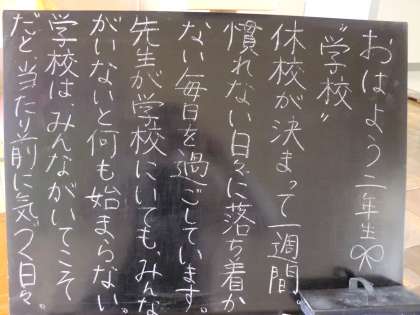 おはよう二年生
"学校"
休校が決まって一週間。
慣れない日々に落ち着か
ない毎日を過ごしています。
先生が学校にいても、みんな
がいないと何も始まらない。
学校は、みんながいてこそ
だと当たり前に気づく日々。